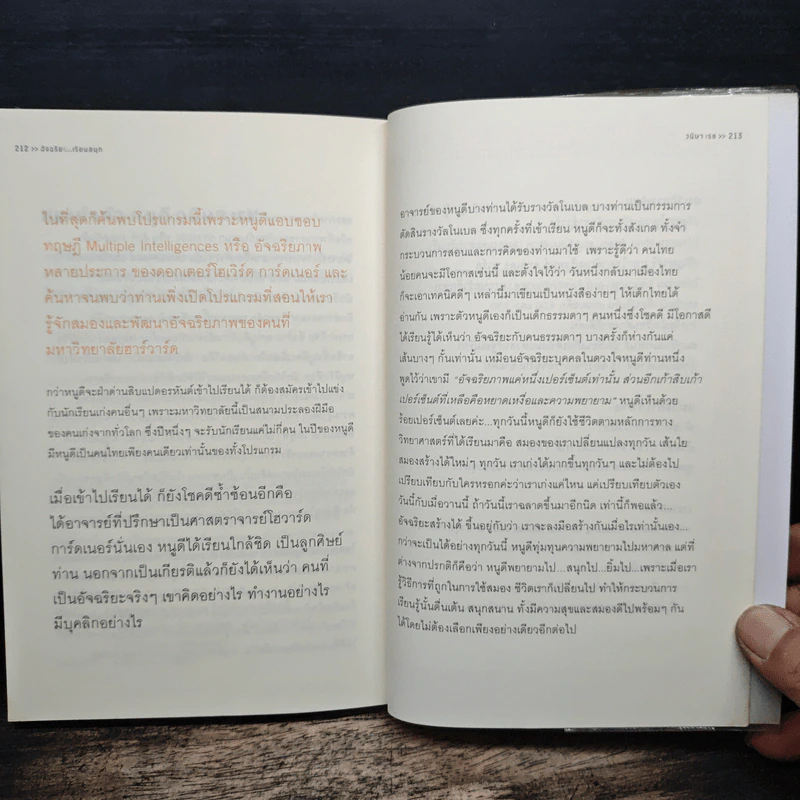 212 >> อัจฉริยะ...เรียนสนุก
ในที่สุดก็ค้นพบโปรแกรมนี้เพราะหนูดีแอบชอบ
ทฤษฎี Multiple Intelligences หรือ อัจฉริยภาพ
หลายประการ ของดอกเตอร์โฮเวิร์ด การ์ดเนอร์ และ
ค้นหาจนพบว่าท่านเพิ่งเปิดโปรแกรมที่สอนให้เรา
รู้จักสมองและพัฒนาอัจฉริยภาพของคนที่
มหาวิทยาลัยฮาร์วาร์ด
กว่าหนูดีจะฝ่าด่านสิบแปดอรหันต์เข้าไปเรียนได้ ก็ต้องสมัครเข้าไปแข่ง
กับนักเรียนเก่งคนอื่นๆ เพราะมหาวิทยาลัยนี้เป็นสนามประลองฝีมือ
ของคนเก่งจากทั่วโลก ซึ่งปีหนึ่งๆ จะรับนักเรียนแค่ไม่กี่คน ในปีของหนูดี
มีหนูดีเป็นคนไทยเพียงคนเดียวเท่านั้นของทั้งโปรแกรม
เมื่อเข้าไปเรียนได้ ก็ยังโชคดีซ้ำซ้อนอีกคือ
ได้อาจารย์ที่ปรึกษาเป็นศาสตราจารย์โฮวาร์ด
การ์ดเนอร์นั่นเอง หนูดีได้เรียนใกล้ชิด เป็นลูกศิษย์
ท่าน นอกจากเป็นเกียรติแล้วก็ยังได้เห็นว่า คนที่
เป็นอัจฉริยะจริงๆ เขาคิดอย่างไร ทำงานอย่างไร
มีบุคลิกอย่างไร
วนิษา เรซ >> 213
อาจารย์ของหนูดีบางท่านได้รับรางวัลโนเบล บางท่านเป็นกรรมการ
ตัดสินรางวัลโนเบล ซึ่งทุกครั้งที่เข้าเรียน หนูดีก็จะทั้งสังเกต ทั้งจำ
กระบวนการสอนและการคิดของท่านมาใช้ เพราะรู้ดีว่า คนไทย
น้อยคนจะมีโอกาสเช่นนี้ และตั้งใจไว้ว่า วันหนึ่งกลับมาเมืองไทย
ก็จะเอาเทคนิคดีๆ เหล่านี้มาเขียนเป็นหนังสือง่ายๆ ให้เด็กไทยได้
อ่านกัน เพราะตัวหนูดีเองก็เป็นเด็กธรรมดาๆ คนหนึ่งซึ่งโชคดี มีโอกาสดี
ได้เรียนรู้ได้เห็นว่า อัจฉริยะกับคนธรรมดาๆ บางครั้งก็ห่างกันแค่
เส้นบางๆ กั้นเท่านั้น เหมือนอัจฉริยะบุคคลในดวงใจหนูดีท่านหนึ่ง
พูดไว้ว่าเขามี “อัจฉริยภาพแค่หนึ่งเปอร์เซ็นต์เท่านั้น ส่วนอีกเก้าสิบเก้า
เปอร์เซ็นต์ที่เหลือคือหยาดเหงื่อและความพยายาม” หนูดีเห็นด้วย
ร้อยเปอร์เซ็นต์เลยค่ะ...ทุกวันนี้หนูดีก็ยังใช้ชีวิตตามหลักการทาง
วิทยาศาสตร์ที่ได้เรียนมาคือ สมองของเราเปลี่ยนแปลงทุกวัน เส้นใย
สมองสร้างได้ใหม่ๆ ทุกวัน เราเก่งได้มากขึ้นทุกวันๆ และไม่ต้องไป
เปรียบเทียบกับใครหรอกค่ะว่าเราเก่งแค่ไหน แค่เปรียบเทียบตัวเอง
วันนี้กับเมื่อวานนี้ ถ้าวันนี้เราฉลาดขึ้นมาอีกนิด เท่านี้ก็พอแล้ว...
อัจฉริยะสร้างได้ ขึ้นอยู่กับว่า เราจะลงมือสร้างกันเมื่อไรเท่านั้นเอง...
กว่าจะเป็นได้อย่างทุกวันนี้ หนูดีทุ่มทุนความพยายามไปมหาศาล แต่ที่
ต่างจากปรกติก็คือว่า หนูดีพยายามไป...สนุกไป...ยิ้มไป...เพราะเมื่อเรา
รู้วิธีการที่ถูกในการใช้สมอง ชีวิตเราก็เปลี่ยนไป ทำให้กระบวนการ
เรียนรู้นั้นตื่นเต้น สนุกสนาน ทั้งมีความสุขและสมองดีไปพร้อมๆ กัน
ได้โดยไม่ต้องเลือกเพียงอย่างเดียวอีกต่อไป